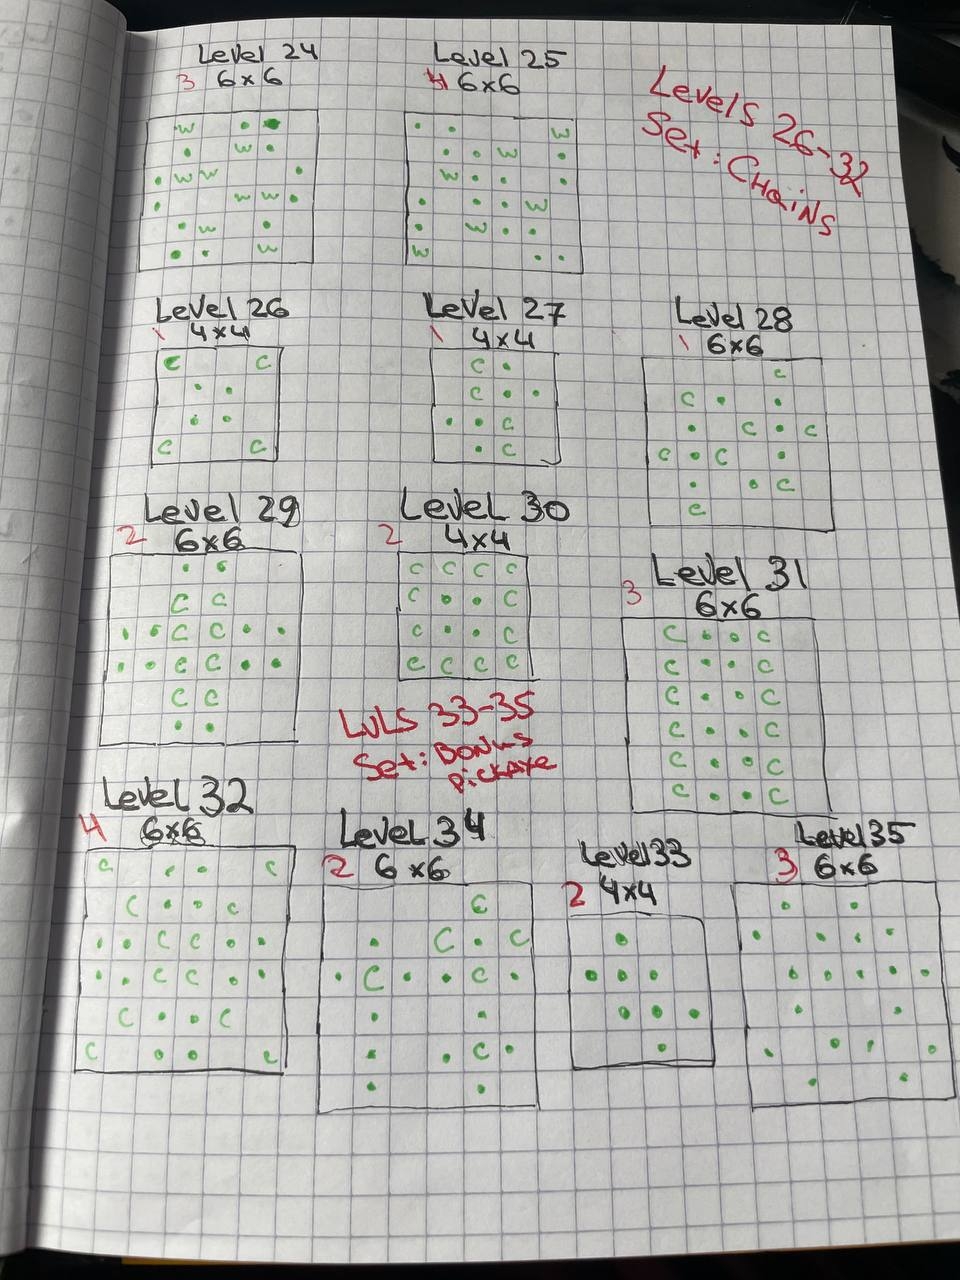 Level 24
3 6x6
w
w
w w
w w
w
w
Level 25
4 6x6
w
w
w
w
w
w
Levels 26-32
Set: CHaiNS
Level 26
1 4x4
C C
C C
Level 27
1 4x4
C
C
C
C
Level 28
1 6x6
C
C
C C
C C
C
C
Level 29
2 6x6
C C
C C
C C
C C
Level 30
2 4x4
C C C C
C C
C C
C C C C
Level 31
3 6x6
C C
C C
C C
C C
C C
C C
LVLS 33-35
Set: Bonus
pickaxe
Level 32
4 6x6
C C
C C
C C
C C
C C
C C
Level 34
2 6x6
C
C C
C C
C
Level 33
2 4x4
Level 35
3 6x6